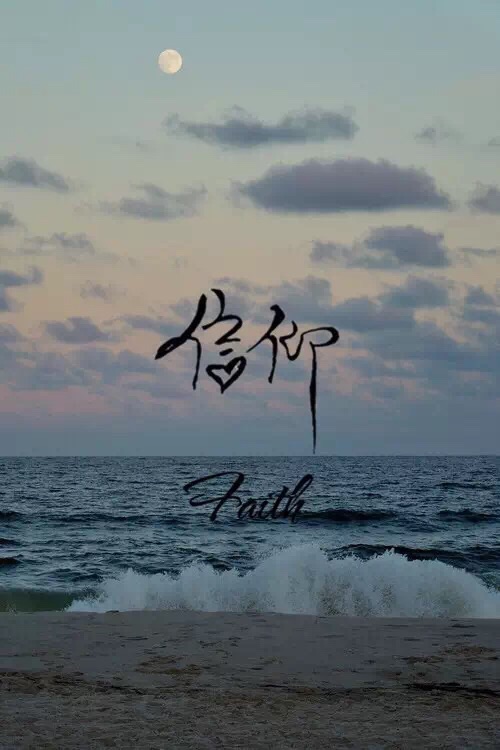 信仰
Faith